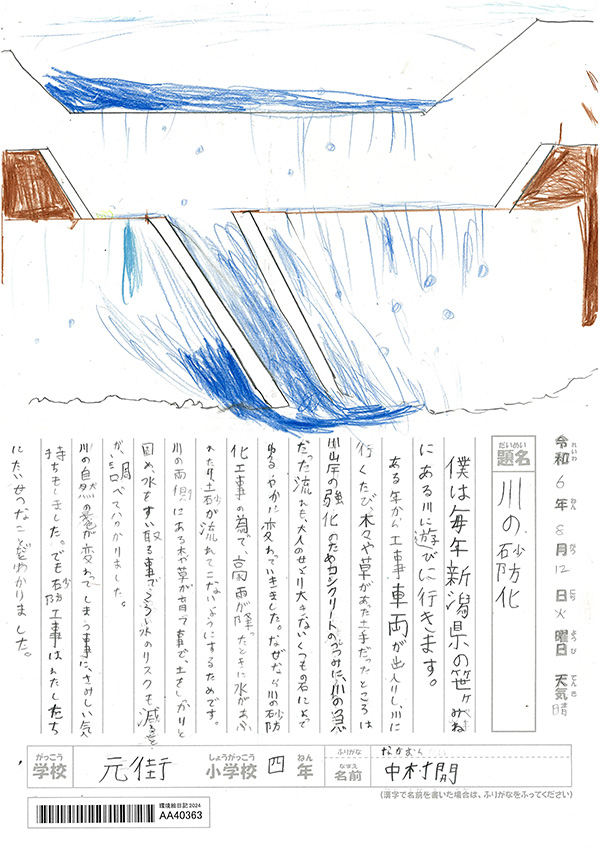 令和6年8月12日火曜日 天気晴
れいわ ねん がつ にち ようび てんき
だいめい
題名
川の砂防化
僕は毎年新潟県の笹ヶみね
にある川に遊びに行きます。
ある年から工事車両が出入りし、川に
行くたび、木々や草があった土手だったところは
川岸の強化のためコンクリートの
だった流れも、大人のせより大きないくつもの石によって
ゆるやかに変わっていきました。なぜなら川の砂防
化工事の為で、豪雨が降ったときに水があふ
れたり、土砂が流れてこないようにするためです。
川の両側にある木や草が育つ事で、土をしっかりと
固め、水をすい取る事でこう水のリスクも減ると
調べてわかりました。
川の自然の姿が変わってしまう事に、さみしい気
持ちもしました。でも砂防工事はわたしたち
にたいせつなことだとわかりました。
がっこう
学校
元街
しょうがっこう
小学校
四
ねん
年
ふりがな
なまえ
名前
中村
(漢字で名前を書いた場合は、ふりがなをふってください)
環境絵日記2024
AA40363